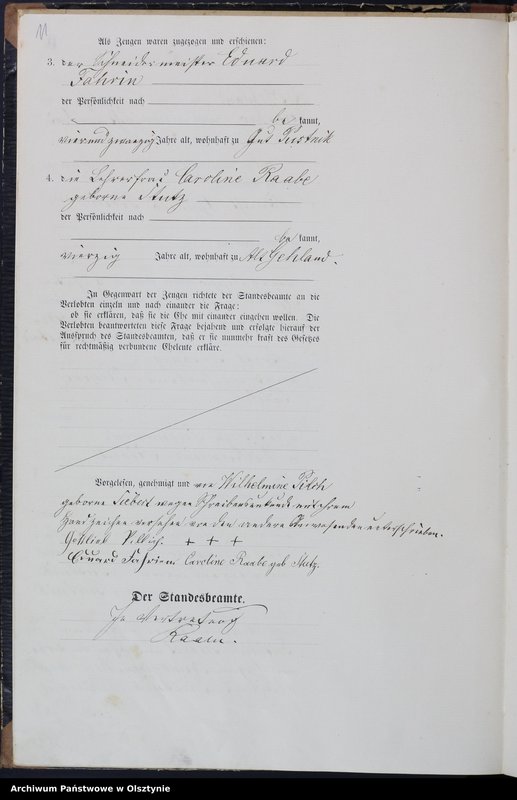 11
Als Zeugen waren zugezogen und erschienen:
3. der Schneidermeister Eduard
Fahrin
der Persönlichkeit nach
be kannt,
vierundzwanzig Jahre alt, wohnhaft zu Gut Pustnik
4. die Lehrerfrau Caroline Raabe
geborne Stutz
der Persönlichkeit nach
be kannt,
vierzig Jahre alt, wohnhaft zu Alt Gehland.
In Gegenwart der Zeugen richtete der Standesbeamte an die
Verlobten einzeln und nach einander die Frage:
ob sie erklären, daß sie die Ehe mit einander eingehen wollen. Die
Verlobten beantworteten diese Frage bejahend und erfolgte hierauf der
Ausspruch des Standesbeamten, daß er sie nunmehr kraft des Gesetzes
für rechtmäßig verbundene Eheleute erkläre.
Vorgelesen, genehmigt und von Wilhelmine
geborne wegen Schreibensunkunde mit ihrem
Handzeichen versehen von den anderen Anwesenden unterschrieben.
Gottlieb + + +
Eduard Fahrin Caroline Raabe geb Stutz.
Der Standesbeamte.
In Vertretung
Archiwum Państwowe w Olsztynie